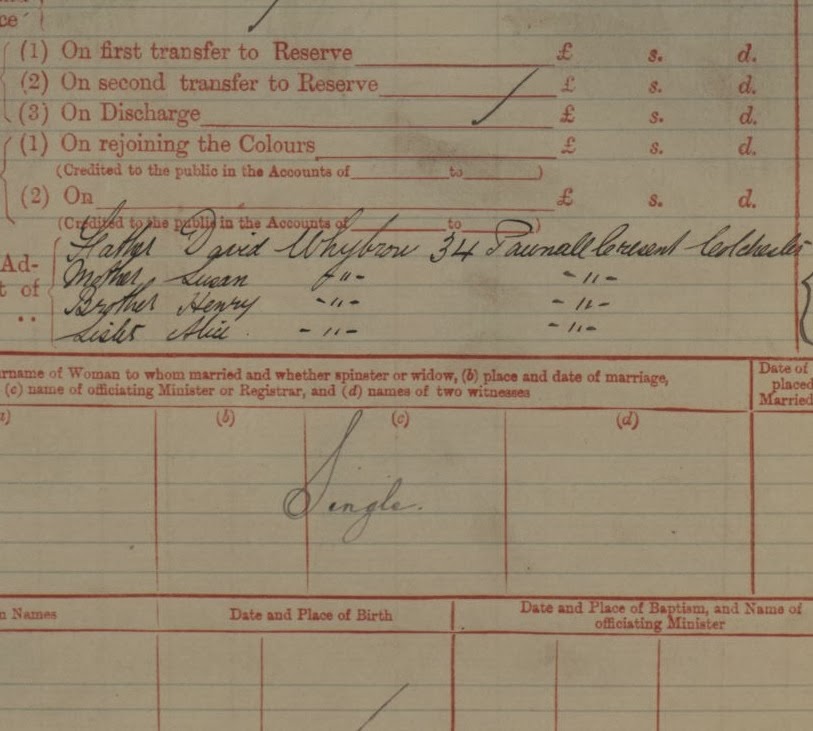 ce'
(1) On first transfer to Reserve £ s. d.
(2) On second transfer to Reserve £ s. d.
(3) On Discharge £ s. d.
(1) On rejoining the Colours £ s. d.
(Credited to the public in the Accounts of to )
(2) On £ s. d.
(Credited to the public in the Accounts of to )
Father David Whybrow 34 Pownall Cresent Colchester
Ad- Mother Susan -"- -"-
t of Brother Henry -"- -"-
.. Sister Alice -"- -"-
urname of Woman to whom married and whether spinster or widow, (b) place and date of marriage, Date of
(c) name of officiating Minister or Registrar, and (d) names of two witnesses placed
Married
(b) (c) (d)
Single.
n Names Date and Place of Birth Date and Place of Baptism, and Name of
officiating Minister